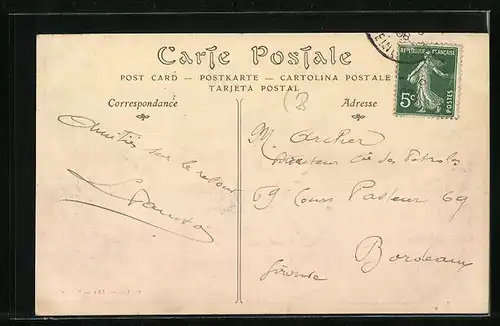 Carte Postale
POST CARD – POSTKARTE – CARTOLINA POSTALE
TARJETA POSTAL
Correspondance
Adresse
REPUBLIQUE FRANÇAISE
5c
POSTES
Amitiés sur le retour
M. Archer
Directeur Cie des Pétroles
69 Cours Pasteur 69
Bordeaux
Gironde